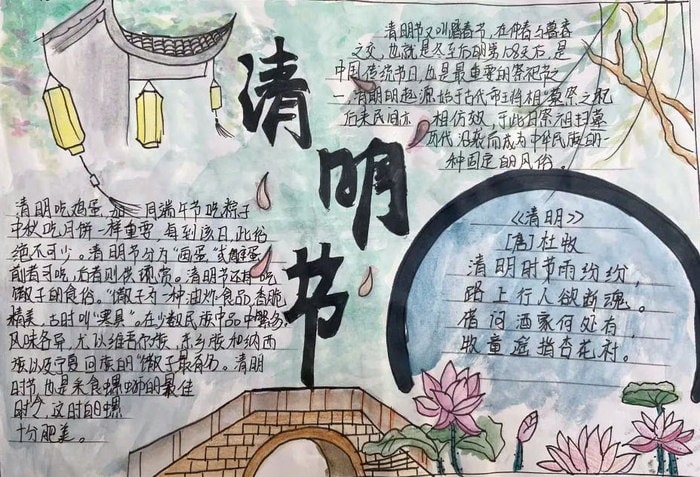 清明节
清明节又叫踏春节，在仲春与暮春
之交，也就是冬至后的第108天后，是
中国传统节日，也是最重要的祭祀节
一、清明的起源始于古代帝王将相"墓祭之祀
后来民间亦 相仿效，于此日祭祖扫墓
历代沿袭而成为中华民族的一
种固定的风俗。
清明吃鸡蛋，如 同端午节吃粽子
中秋吃月饼一样重要，每到该日，此俗
绝不可少。清明节分为"画蛋"或雕蛋
前者可吃，后者则供观赏。清明节还有吃
馓子的食俗。"馓子为一种油炸食品香脆
精美，古时叫"寒具"。在少数民族中品中繁多，
风味各异，尤以维吾尔族，东乡族和纳西
族以及宁夏回族的"馓子最有名。清明
时节，也是采食螺蛳的最佳
时令，这时的螺
十分肥美。
《清明》
[唐]杜牧
清明时节雨纷纷，
路上行人欲断魂。
借问酒家何处有，
牧童遥指杏花村。